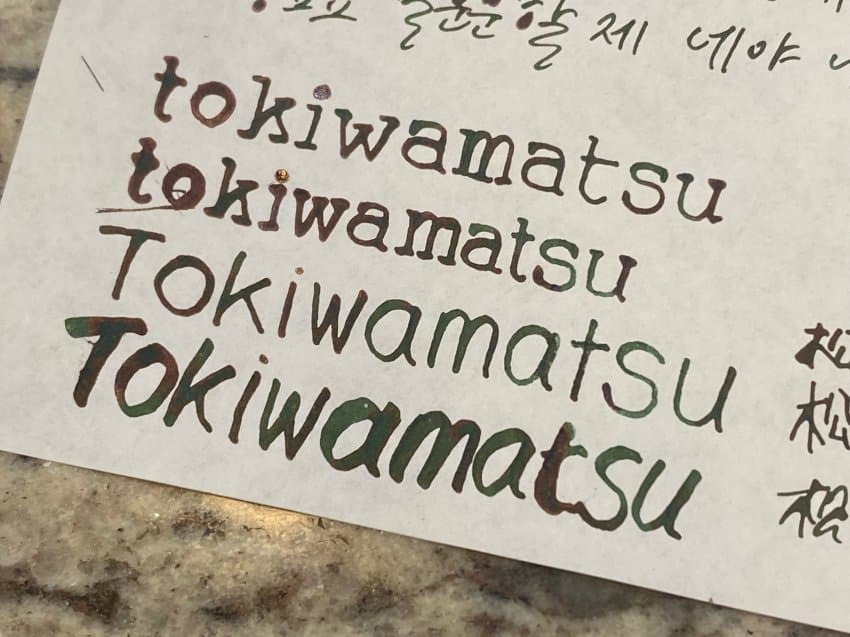 할 제 네야
tokiwamatsu
tokiwamatsu
Tokiwamatsu
Tokiwamatsu
松
松
松